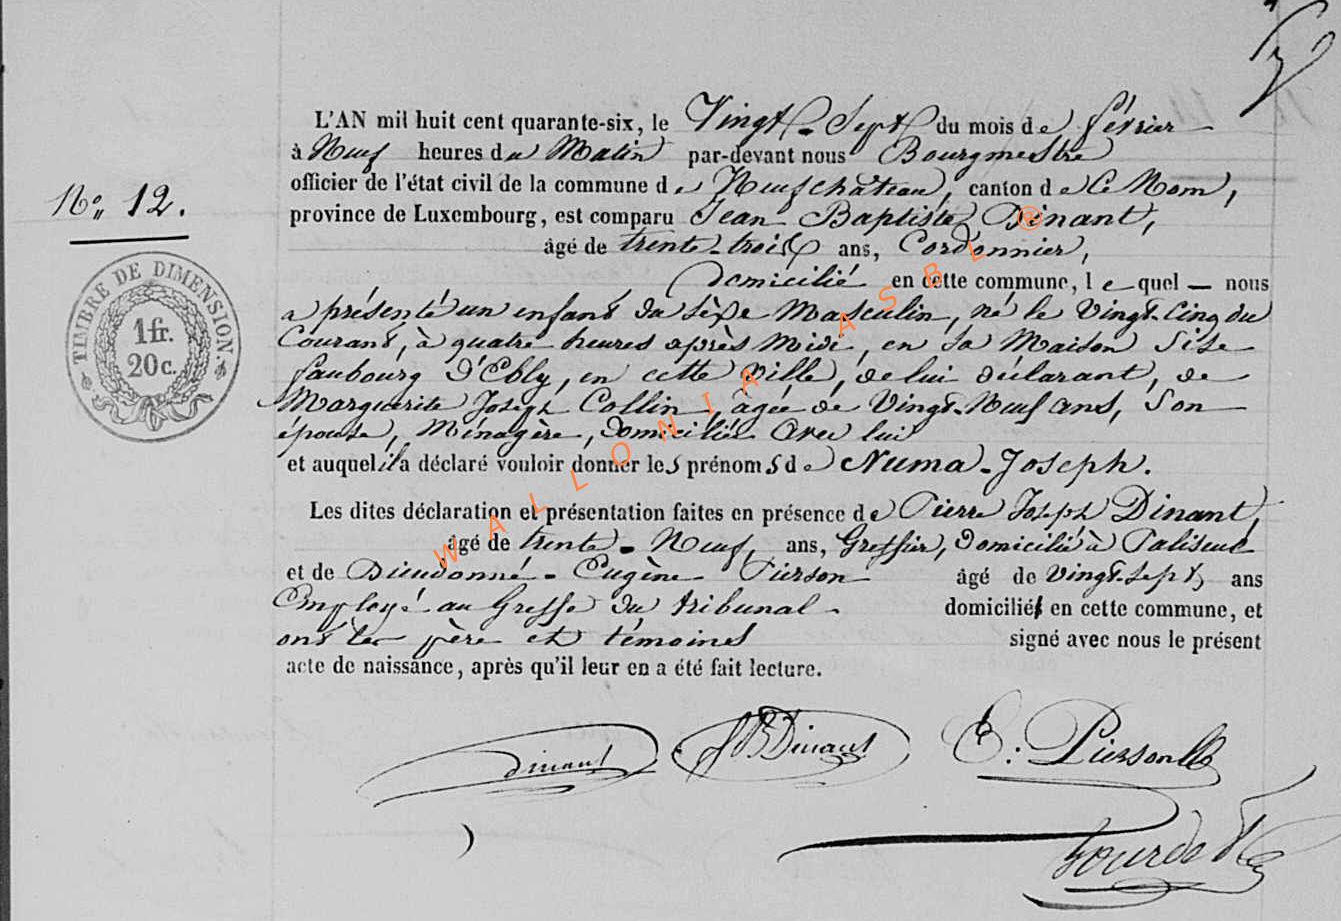 L'AN mil huit cent quarante-six, le Vingt-Sept du mois de février
à Neuf heures du Matin par-devant nous Bourgmestre
officier de l'état civil de la commune de Neufchâteau, canton de Ce Nom,
No 12.
province de Luxembourg, est comparu Jean-Baptiste Dinant,
âgé de trente-trois ans, Cordonnier,
Domicilié en cette commune, lequel — nous
a présenté un enfant du sèxe Masculin, né le Vingt-Cinq du
Courant, à quatre heures après Midi, en sa Maison Sise
faubourg D'Ebly, en cette Ville, de lui déclarant, de
Marguerite Joseph Collin, âgée de Vingt-Neuf ans, Son
épouse, Ménagère, domiciliée avec lui
et auquel il a déclaré vouloir donner les prénoms de Numa-Joseph.
Les dites déclaration et présentation faites en présence de Pierre Joseph Dinant,
âgé de trente-Neuf, ans, Greffier, domicilié à Paliseul
et de Dieudonné-Eugène Pierson âgé de Vingt-sept, ans
Employé au Greffe du tribunal domicilié en cette commune, et
ont les père et témoins signé avec nous le présent
acte de naissance, après qu'il leur en a été fait lecture.
TIMBRE DE DIMENSION.
1 fr.
20 c.
WALLONIA ASBL ®
Dinant JB Dinant E. Pierson